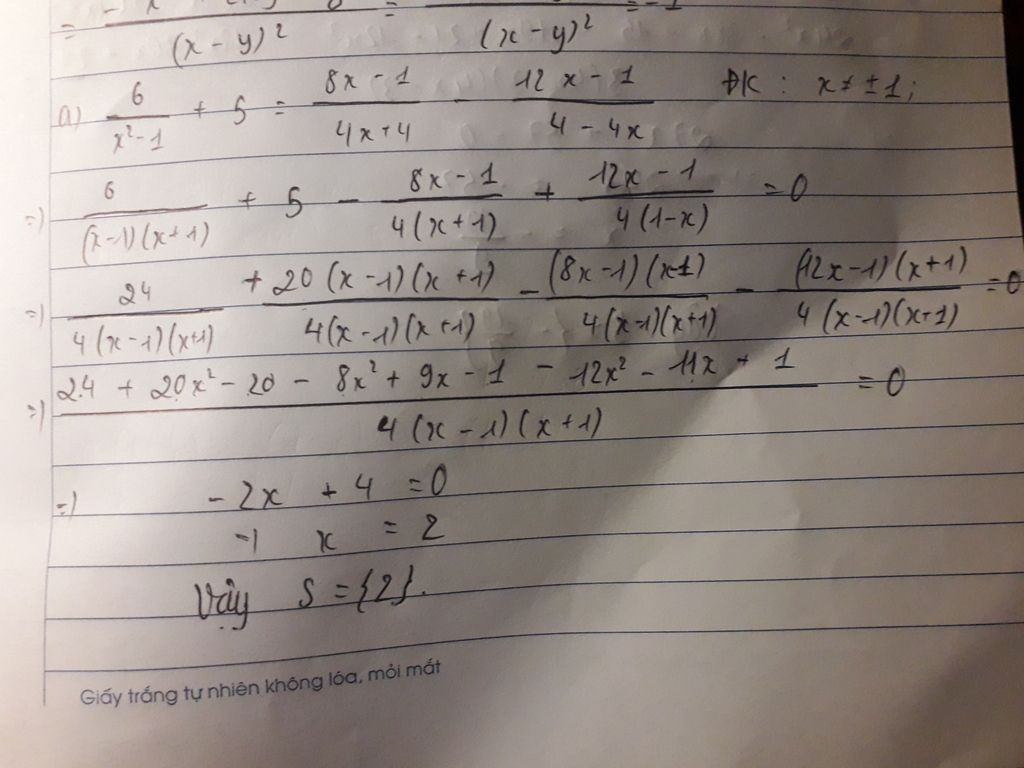 (x - y)² (x - y)² = -1
a) 6/(x² - 1) + 5 = (8x - 1)/(4x + 4) - (12x - 1)/(4 - 4x) ĐK : x ≠ ±1;
=) 6/((x - 1)(x + 1)) + 5 - (8x - 1)/(4(x + 1)) + (12x - 1)/(4(1 - x)) = 0
=) 24/(4(x - 1)(x + 1)) + 20(x - 1)(x + 1)/(4(x - 1)(x + 1)) - (8x - 1)(x - 1)/(4(x - 1)(x + 1)) - (12x - 1)(x + 1)/(4(x - 1)(x + 1)) = 0
=) (24 + 20x² - 20 - 8x² + 9x - 1 - 12x² - 11x + 1)/(4(x - 1)(x + 1)) = 0
=) - 2x + 4 = 0
=) x = 2
Vậy S = {2}.
Giấy trắng tự nhiên không lóa, mỏi mắt